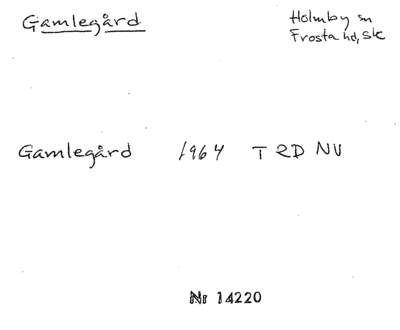 Gamlegård
Holmby sn
Frosta hd, Sk
Gamlegård 1964 T RD NV
Nr 14220